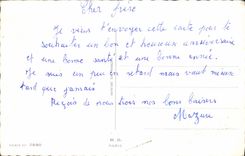 Cher frère
Je veux t'envoyer cette carte pour te
souhaiter un bon et heureux anniversaire
et une bonne santé et une bonne année.
Je suis un peu en retard mais vaut mieux
tard que jamais
Reçois de nous trois nos bons baisers
PARIS